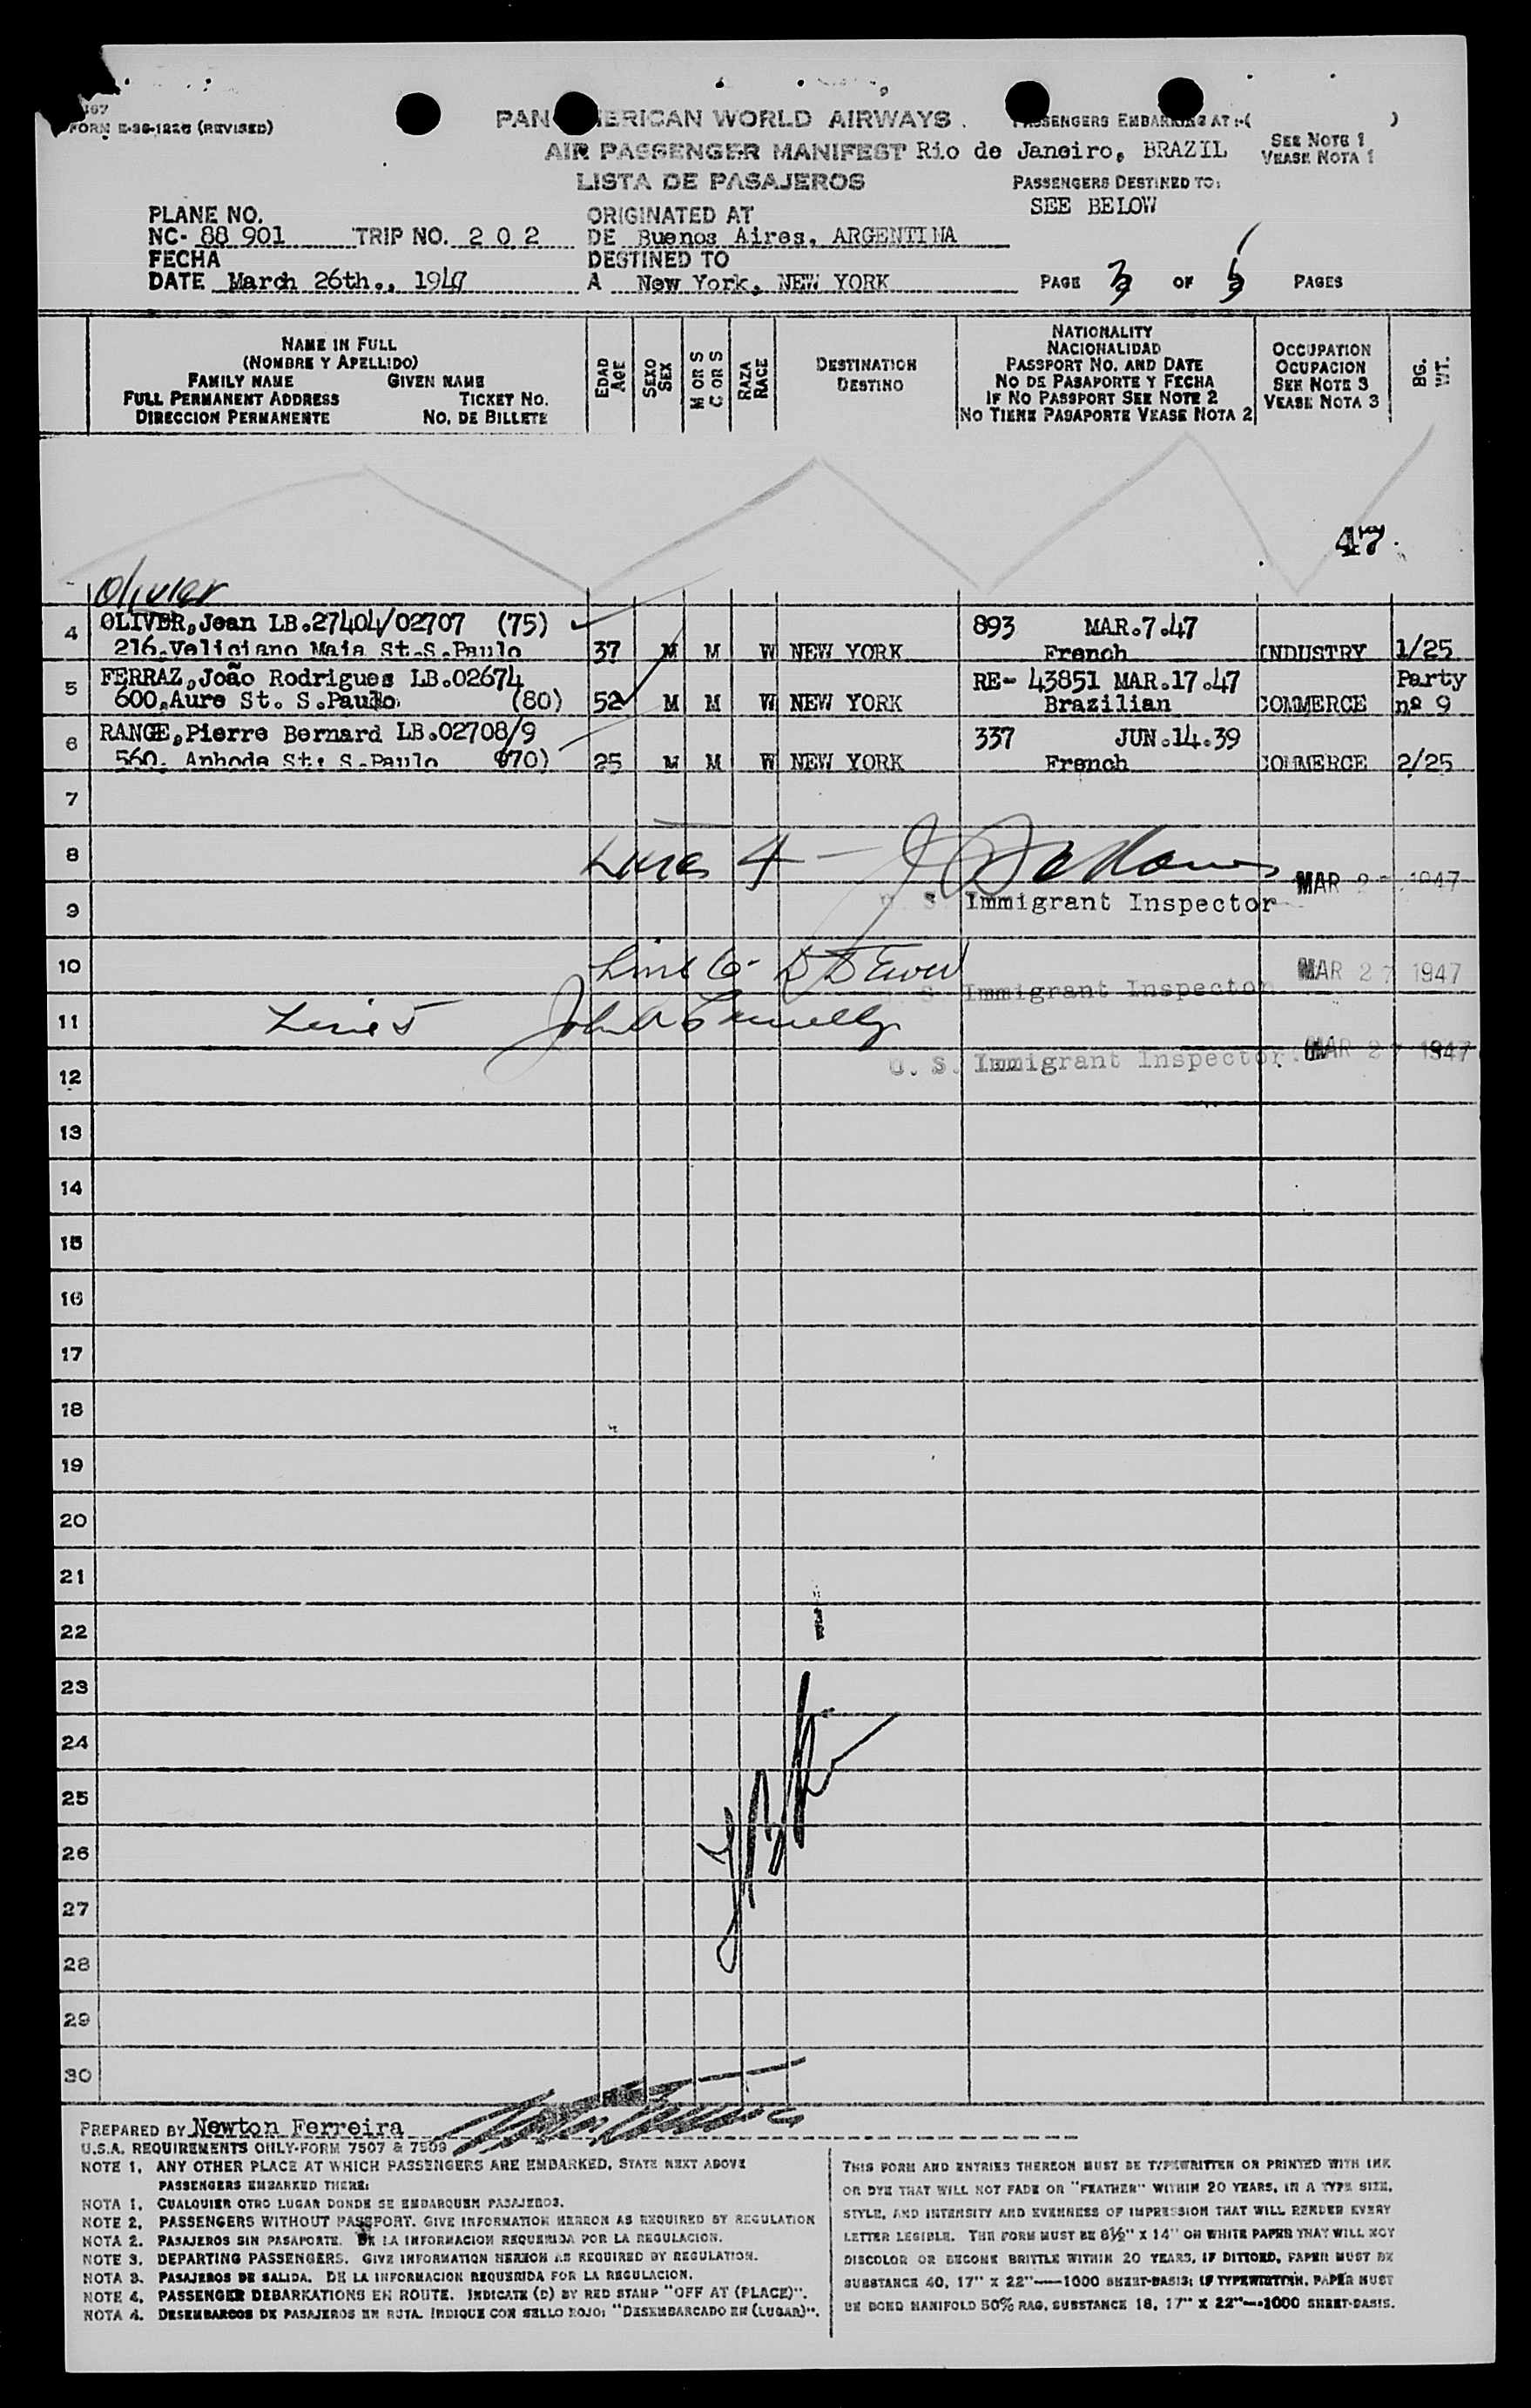 FORM E-96-1226 (REVISED)
PAN AMERICAN WORLD AIRWAYS
AIR PASSENGER MANIFEST
LISTA DE PASAJEROS
PASSENGERS EMBARKING AT :-( )
Rio de Janeiro, BRAZIL
SEE NOTE 1
VEASE NOTA 1
PASSENGERS DESTINED TO:
SEE BELOW
PLANE NO.
NC- 88 901 TRIP NO. 2 0 2
FECHA
DATE March 26th., 1947
ORIGINATED AT
DE Buenos Aires, ARGENTINA
DESTINED TO
A New York, NEW YORK
PAGE 3 OF 5 PAGES
NAME IN FULL
(NOMBRE Y APELLIDO)
FAMILY NAME GIVEN NAME
FULL PERMANENT ADDRESS TICKET NO.
DIRECCION PERMANENTE NO. DE BILLETE
EDAD
AGE
SEXO
SEX
M OR S
C OR S
RAZA
RACE
DESTINATION
DESTINO
NATIONALITY
NACIONALIDAD
PASSPORT NO. AND DATE
NO DE PASAPORTE Y FECHA
IF NO PASSPORT SEE NOTE 2
NO TIENE PASAPORTE VEASE NOTA 2
OCCUPATION
OCUPACION
SEE NOTE 3
VEASE NOTA 3
BG.
WT.
47
Olivier
4 OLIVER, Jean LB.27404/02707 (75) 893 MAR.7.47
216.Veliciano Maia St.S.Paulo 37 M M W NEW YORK French INDUSTRY 1/25
5 FERRAZ, João Rodrigues LB.02674 RE- 43851 MAR.17.47 Party
600,Aure St. S.Paulo (80) 52 M M W NEW YORK Brazilian COMMERCE nº 9
6 RANGE, Pierre Bernard LB.02708/9 337 JUN.14.39
560. Anhoda St: S.Paulo (70) 25 M M W NEW YORK French COMMERCE 2/25
7
8 4 -
MAR 27 1947
9 U. S. Immigrant Inspector
10 Line 6 - MAR 27 1947
U. S. Immigrant Inspector
11 Line 5
U. S. Immigrant Inspector. MAR 27 1947
12
13
14
15
16
17
18
19
20
21
22
23
24
25
26
27
28
29
30
PREPARED BY Newton Ferreira
U.S.A. REQUIREMENTS ONLY-FORM 7507 & 7509
NOTE 1. ANY OTHER PLACE AT WHICH PASSENGERS ARE EMBARKED, STATE NEXT ABOVE
PASSENGERS EMBARKED THERE:
NOTA 1. CUALQUIER OTRO LUGAR DONDE SE EMBARQUEN PASAJEROS.
NOTE 2. PASSENGERS WITHOUT PASSPORT. GIVE INFORMATION HEREON AS REQUIRED BY REGULATION
NOTA 2. PASAJEROS SIN PASAPORTE. DE LA INFORMACION REQUERIDA POR LA REGULACION.
NOTE 3. DEPARTING PASSENGERS. GIVE INFORMATION HEREON AS REQUIRED BY REGULATION.
NOTA 3. PASAJEROS DE SALIDA. DE LA INFORMACION REQUERIDA FOR LA REGULACION.
NOTE 4. PASSENGER DEBARKATIONS EN ROUTE. INDICATE (D) BY RED STAMP "OFF AT (PLACE)".
NOTA 4. DESEMBARCOS DE PASAJEROS EN RUTA. INDIQUE CON SELLO ROJO: "DESEMBARCADO EN (LUGAR)".
THIS FORM AND ENTRIES THEREON MUST BE TYPEWRITTEN OR PRINTED WITH INK
OR DYE THAT WILL NOT FADE OR "FEATHER" WITHIN 20 YEARS, IN A TYPE SIZE,
STYLE, AND INTENSITY AND EVENNESS OF IMPRESSION THAT WILL RENDER EVERY
LETTER LEGIBLE. THE FORM MUST BE 8½" X 14" ON WHITE PAPER THAT WILL NOT
DISCOLOR OR BECOME BRITTLE WITHIN 20 YEARS, IF DITTOED, PAPER MUST BE
SUBSTANCE 40, 17" X 22"—1000 SHEET-BASIS; IF TYPEWRITTEN, PAPER MUST
BE BOND MANIFOLD 50% RAG, SUBSTANCE 18, 17" X 22"—1000 SHEET-BASIS.